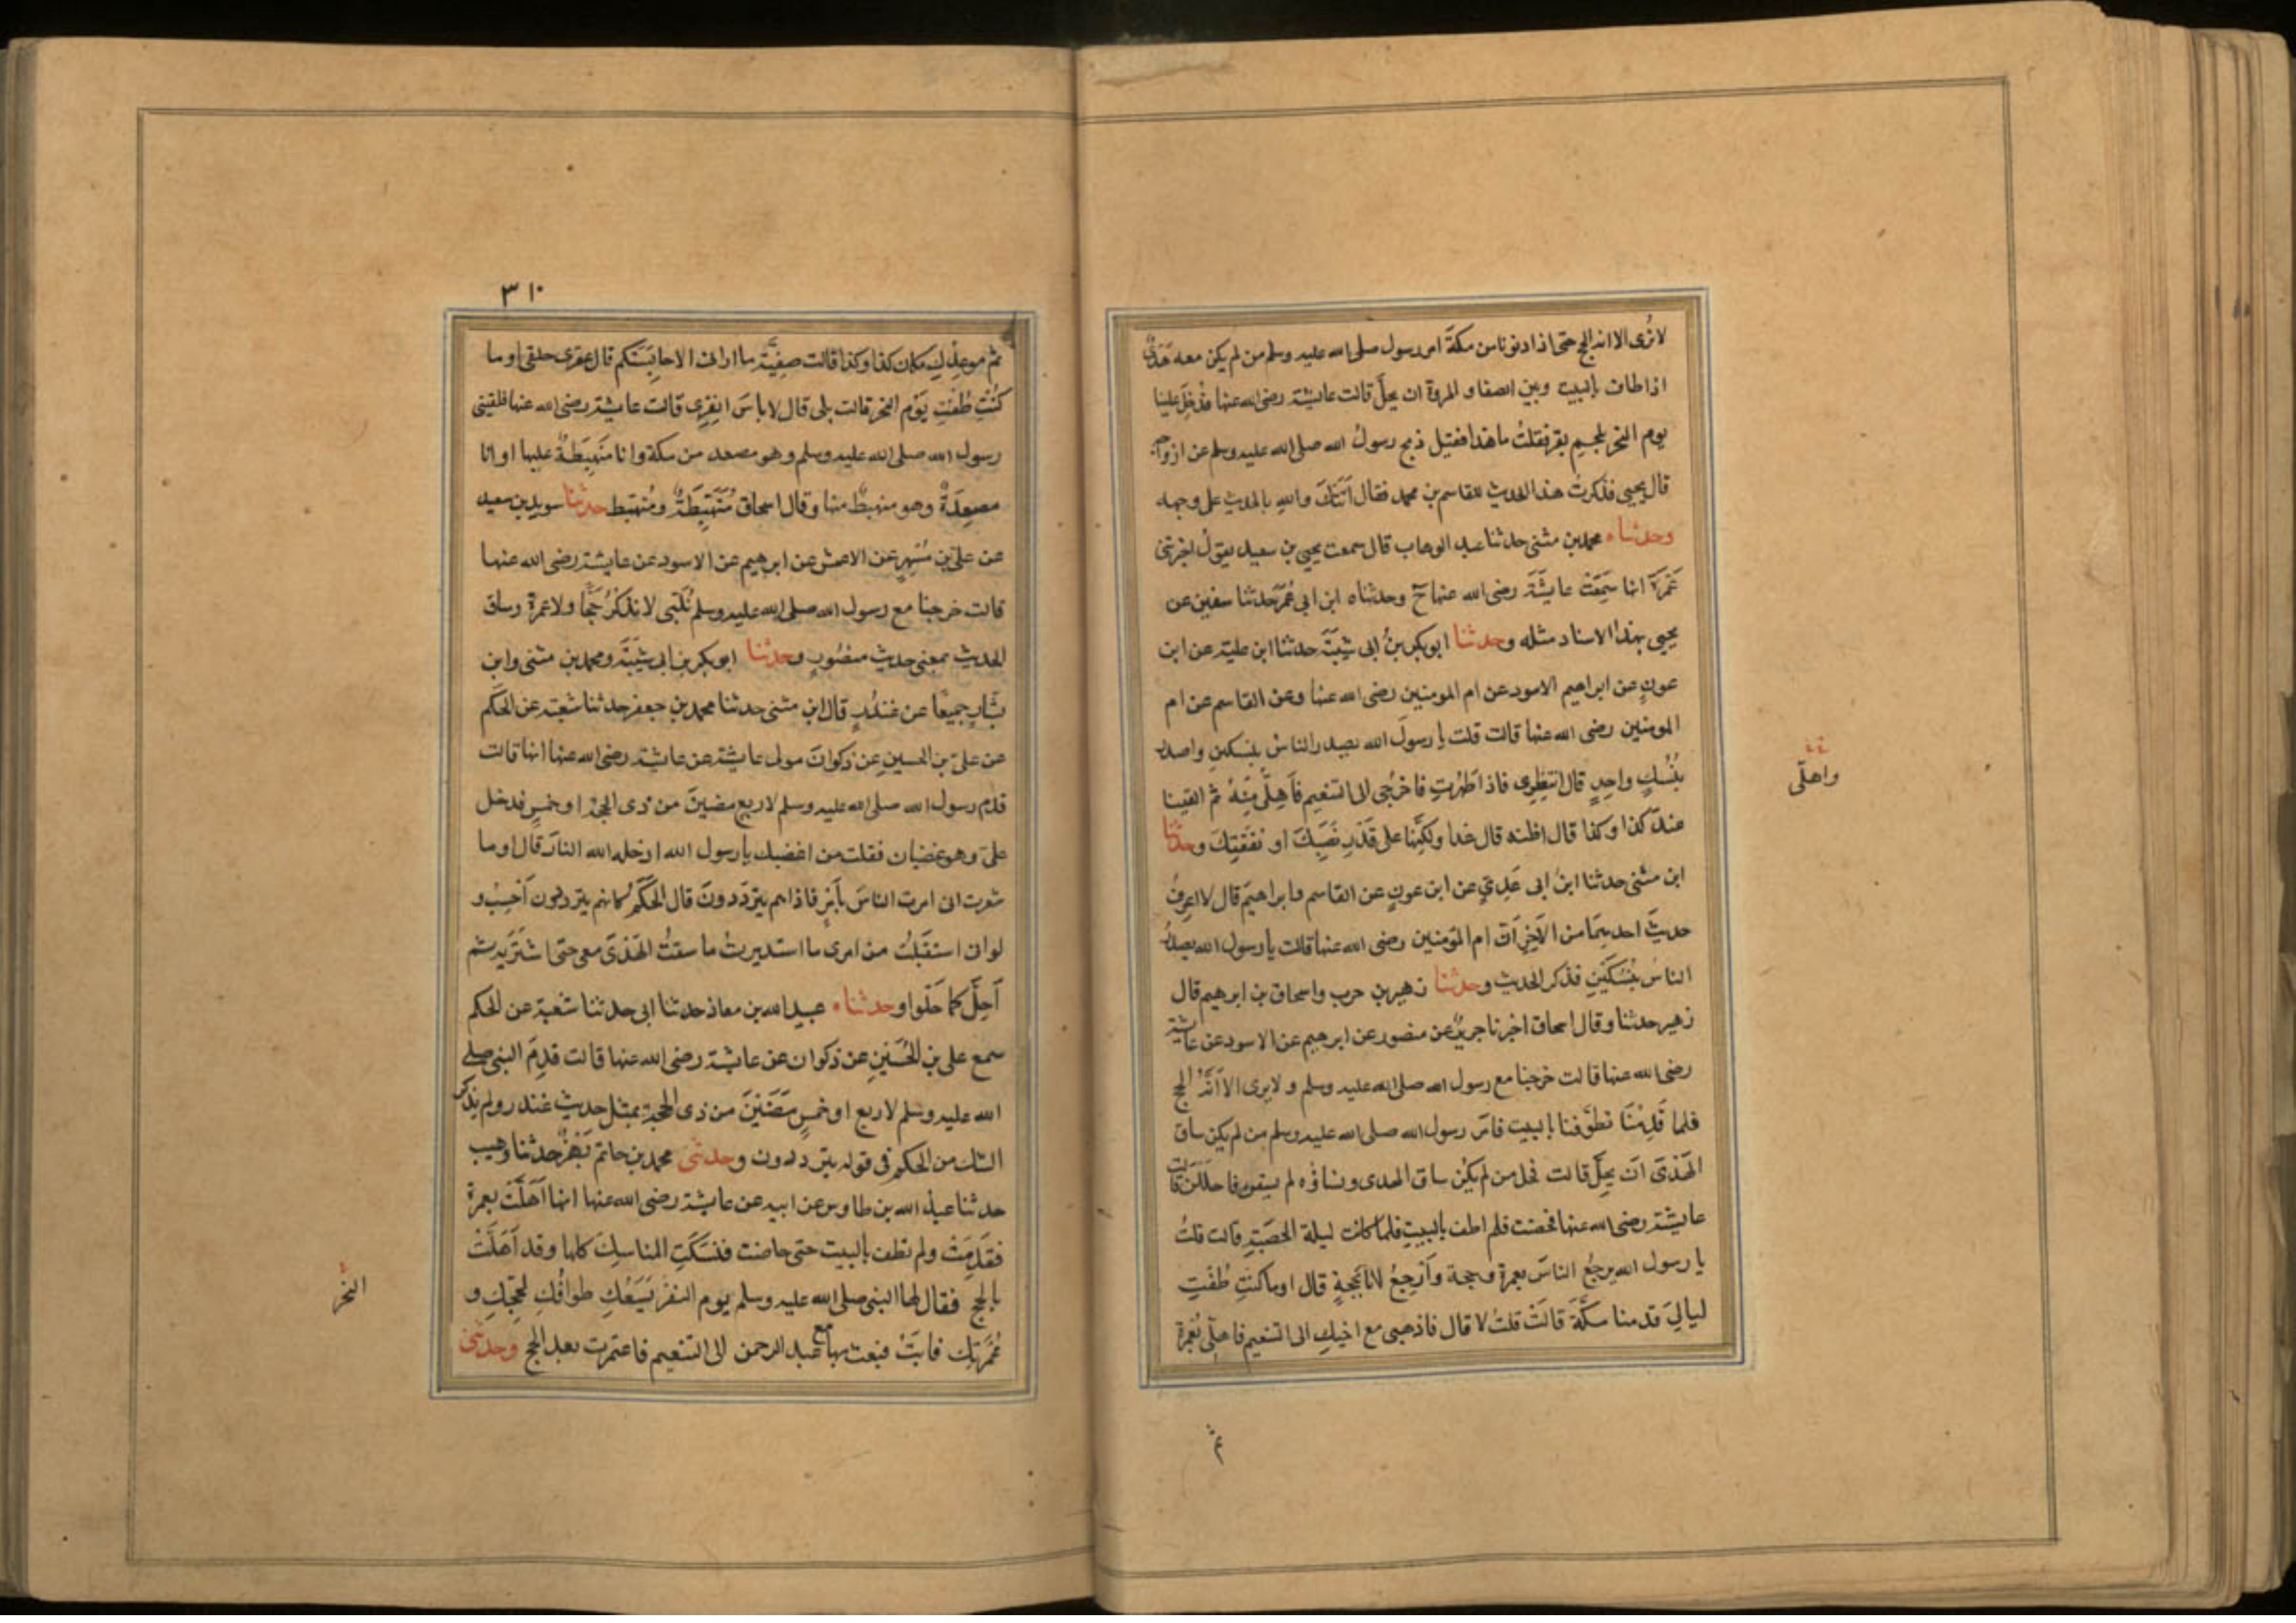 لا نرى الا انه الحج حتى اذا دنونا من مكة امر رسول صلى الله عليه وسلم من لم يكن معه هدى
اذا طاف بالبيت وبين الصفا و المروة ان يحل قالت عايشة رضى الله عنها فدخل علينا
يوم النحر بلحم بقر فقلت ما هذا فقيل ذبح رسول الله صلى الله عليه وسلم عن ازواجه
قال يحيى فذكرت هذا الحديث للقاسم بن محمد فقال اتتك والله بالحديث على وجهه
وحدثناه محمد بن مثنى حدثنا عبد الوهاب قال سمعت يحيى بن سعيد يقول اخبرتنى
عمرة انها سمعت عايشة رضى الله عنها ح وحدثناه ابن ابى عمر حدثنا سفين عن
يحيى بهذا الاسناد مثله وحدثنا ابو بكر بن ابى شيبة حدثنا ابن علية عن ابن
عون عن ابراهيم الاسود عن ام المومنين رضى الله عنها وعن القاسم عن ام
المومنين رضى الله عنها قالت قلت يا رسول الله يصدر الناس بنسكين واصدر
بنسك واحد قال انتظرى فاذا طهرت فاخرجى الى التنعيم فاهلى منه ثم القينا
عند كذا وكذا قال اظنه قال غدا ولكنها على قدر نصبك او نفقتك وحدثنا
ابن مثنى حدثنا ابن ابى عدي عن ابن عون عن القاسم وابراهيم قال لا اعرف
حديث احديهما من الآخر ان ام المؤمنين رضى الله عنها قالت يا رسول الله يصدر
الناس بنسكين فذكر الحديث وحدثنا زهير بن حرب واسحاق بن ابرهيم قال
زهير حدثنا وقال اسحاق اخبرنا جرير عن منصور عن ابرهيم عن الاسود عن عايشة
رضى الله عنها قالت خرجنا مع رسول الله صلى الله عليه وسلم و لا يرى الا انه الحج
فلما قدمنا تطوفنا بالبيت فامر رسول الله صلى الله عليه وسلم من لم يكن ساق
الهدى ان يحل قالت فحل من لم يكن ساق الهدى ونساؤه لم يسقن فاحللن قالت
عايشة رضى الله عنها فحضت فلم اطف بالبيت فلما كانت ليلة الحصبة قالت قلت
يا رسول الله يرجع الناس بعمرة وحجة وارجع انا بحجة قال اوما كنت طفت
ليالى قدمنا مكة قالت قلت لا قال فاذهبى مع اخيك الى التنعيم فاهلى بعمرة
واهلى
ثم
٣١٠
ثم موعدك مكان كذا وكذا قالت صفية ما ارانى الا حابستكم قال عقرى حلقى اوما
كنت طفت يوم النحر قالت بلى قال لا باس انفرى قالت عايشة رضى الله عنها فلقينى
رسول الله صلى الله عليه وسلم وهو مصعد من مكة وانا منهبطة عليها او انا
مصعدة وهو منهبط منها وقال اسحاق متهبطة ومتهبط حدثنا سويد بن سعيد
عن على بن مسهر عن الاعمش عن ابرهيم عن الاسود عن عايشة رضى الله عنها
قالت خرجنا مع رسول الله صلى الله عليه وسلم نلبى لا نذكر حجا ولا عمرة وساق
الحديث بمعنى حديث منصور وحدثنا ابو بكر بن ابى شيبة ومحمد بن مثنى وابن
بشار جميعا عن غندر قال ابن مثنى حدثنا محمد بن جعفر حدثنا شعبة عن الحكم
عن على بن الحسين عن ذكوان مولى عايشة عن عايشة رضى الله عنها انها قالت
قدم رسول الله صلى الله عليه وسلم لاربع مضين من ذى الحجة او خمس فدخل
على وهو غضبان فقلت من اغضبك يا رسول الله ادخله الله النار قال اوما
شعرت انى امرت الناس بأمر فاذا هم يترددون قال الحكم كانهم يترددون احسب و
لو انى استقبلت من امرى ما استدبرت ما سقت الهدى معى حتى اشتريه ثم
احل كما حلوا وحدثناه عبيد الله بن معاذ حدثنا ابى حدثنا شعبة عن الحكم
سمع على بن الحسين عن ذكوان عن عائشة رضى الله عنها قالت قدم النبى صلى
الله عليه وسلم لاربع او خمس مضين من ذى الحجة بمثل حديث غندر ولم يذكر
الشك من الحكم فى قوله يترددون وحدثنى محمد بن حاتم بهز حدثنا وهيب
حدثنا عبد الله بن طاوس عن ابيه عن عايشة رضى الله عنها انها اهلت بعمرة
فقدمت ولم تطف بالبيت حتى حاضت فنسكت المناسك كلها وقد اهلت
بالحج فقال لها النبى صلى الله عليه وسلم يوم النفر يسعك طوافك لحجك و
عمرتك فابت فبعث بها مع عبد الرحمن الى التنعيم فاعتمرت بعد الحج وحدثنى
النحر